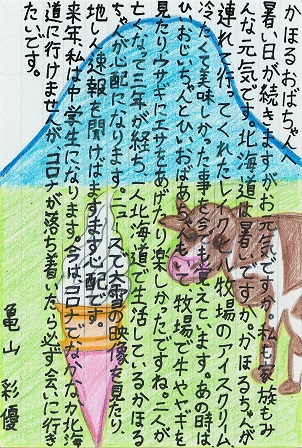 かほるおばちゃんへ
暑い日が続きますがお元気ですか。私も家族もみ
んな元気です。北海道は暑いですか。かほるちゃんが
連れて行ってくれたレークヒル牧場のアイスクリーム
冷たくて美味しかった事を今でも覚えています。あの時は
ひいおじいちゃんとひいおばあちゃんもいて、牧場で牛やヤギを
見たりウサギにエサをあげたり楽しかったですね。二人が
亡くなって三年が経ち、一人北海道で生活しているかほる
ちゃんが心配になります。ニュースで大雪の映像を見たり、
地しん速報を聞けばますます心配です。
来年、私は中学生になります。今はコロナでなかなか北海
道に行けませんが、コロナが落ち着いたら必ず会いに行き
たいです。
亀山 彩優